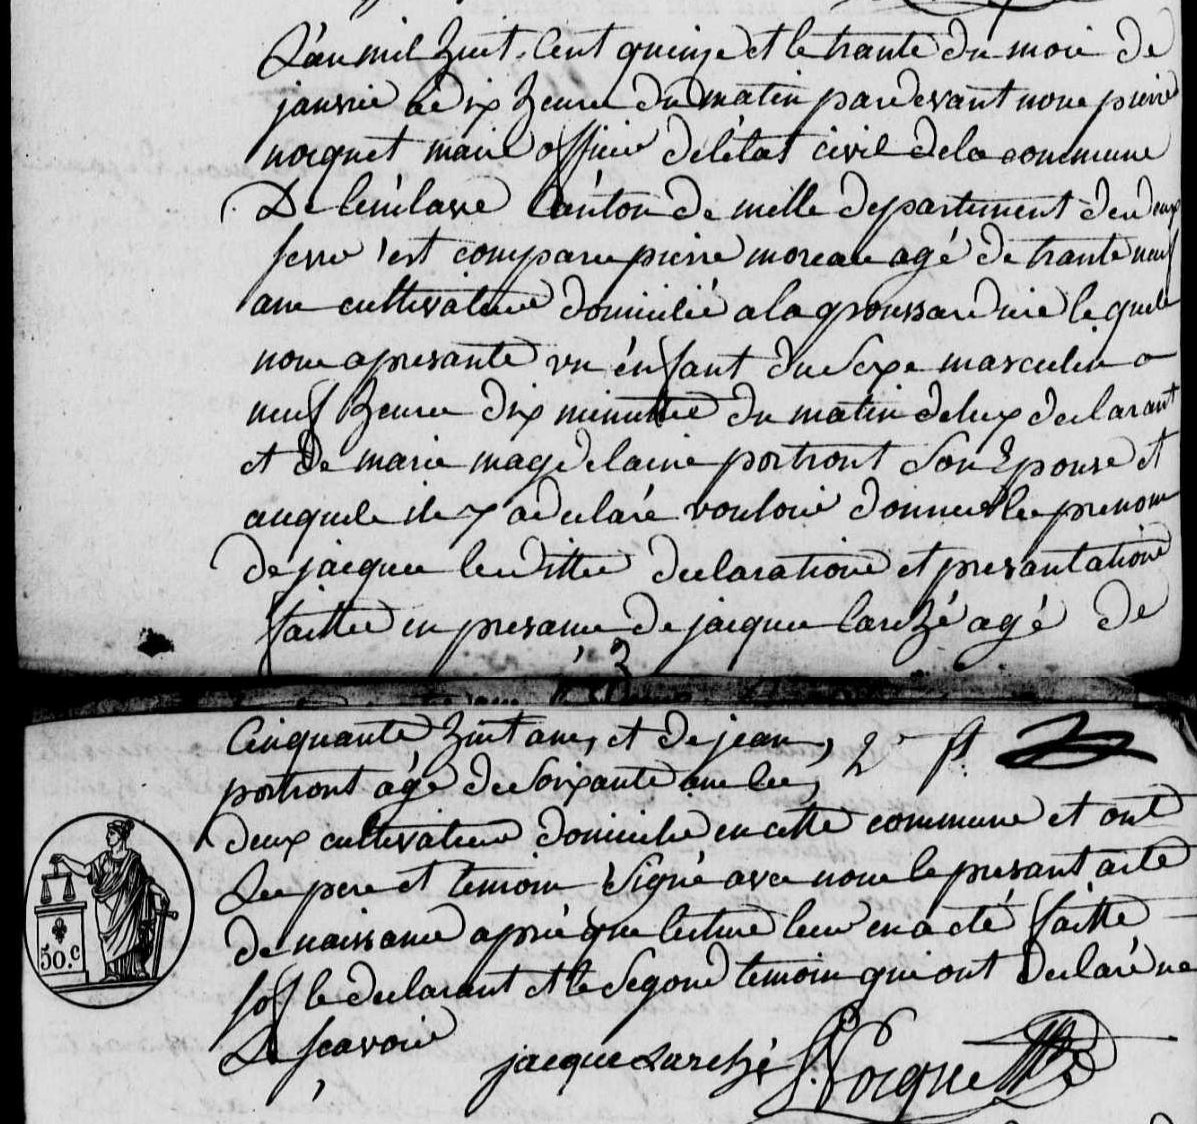 L'an mil huit cent quinze et le trante du mois de
janvier à dix heures du matin pardevant nous pierre
nocquet maire officier de l'état civil de la commune
De canton de melle departement des deux
sevre s'est comparu pierre moreau agé de trante neuf
ans cultivateur domicilié a la groussardiere le quel
nous a presanté un énfant du sexe masculin a
neuf heures dix minutte du matin de lux declarant
et De marie magdelaine portront son Epouse et
auquele il y a declaré vouloir donner le prenom
de jacques lesditte declaration et presantation
faitte en presance de jacques larché agé de
Cinquante huit ans, et de jean,
portront agé de soixante ans les
deux cultivateur domicilié en cette commune et ont
Les pere et temoin signé avec nous le presant acte
de naissance aprié que lecture leur en a eté faitte
sof le declarant et le segond temoin qui ont declaré ne
Le scavoir
jacques Larché P. Nocquet
50.c